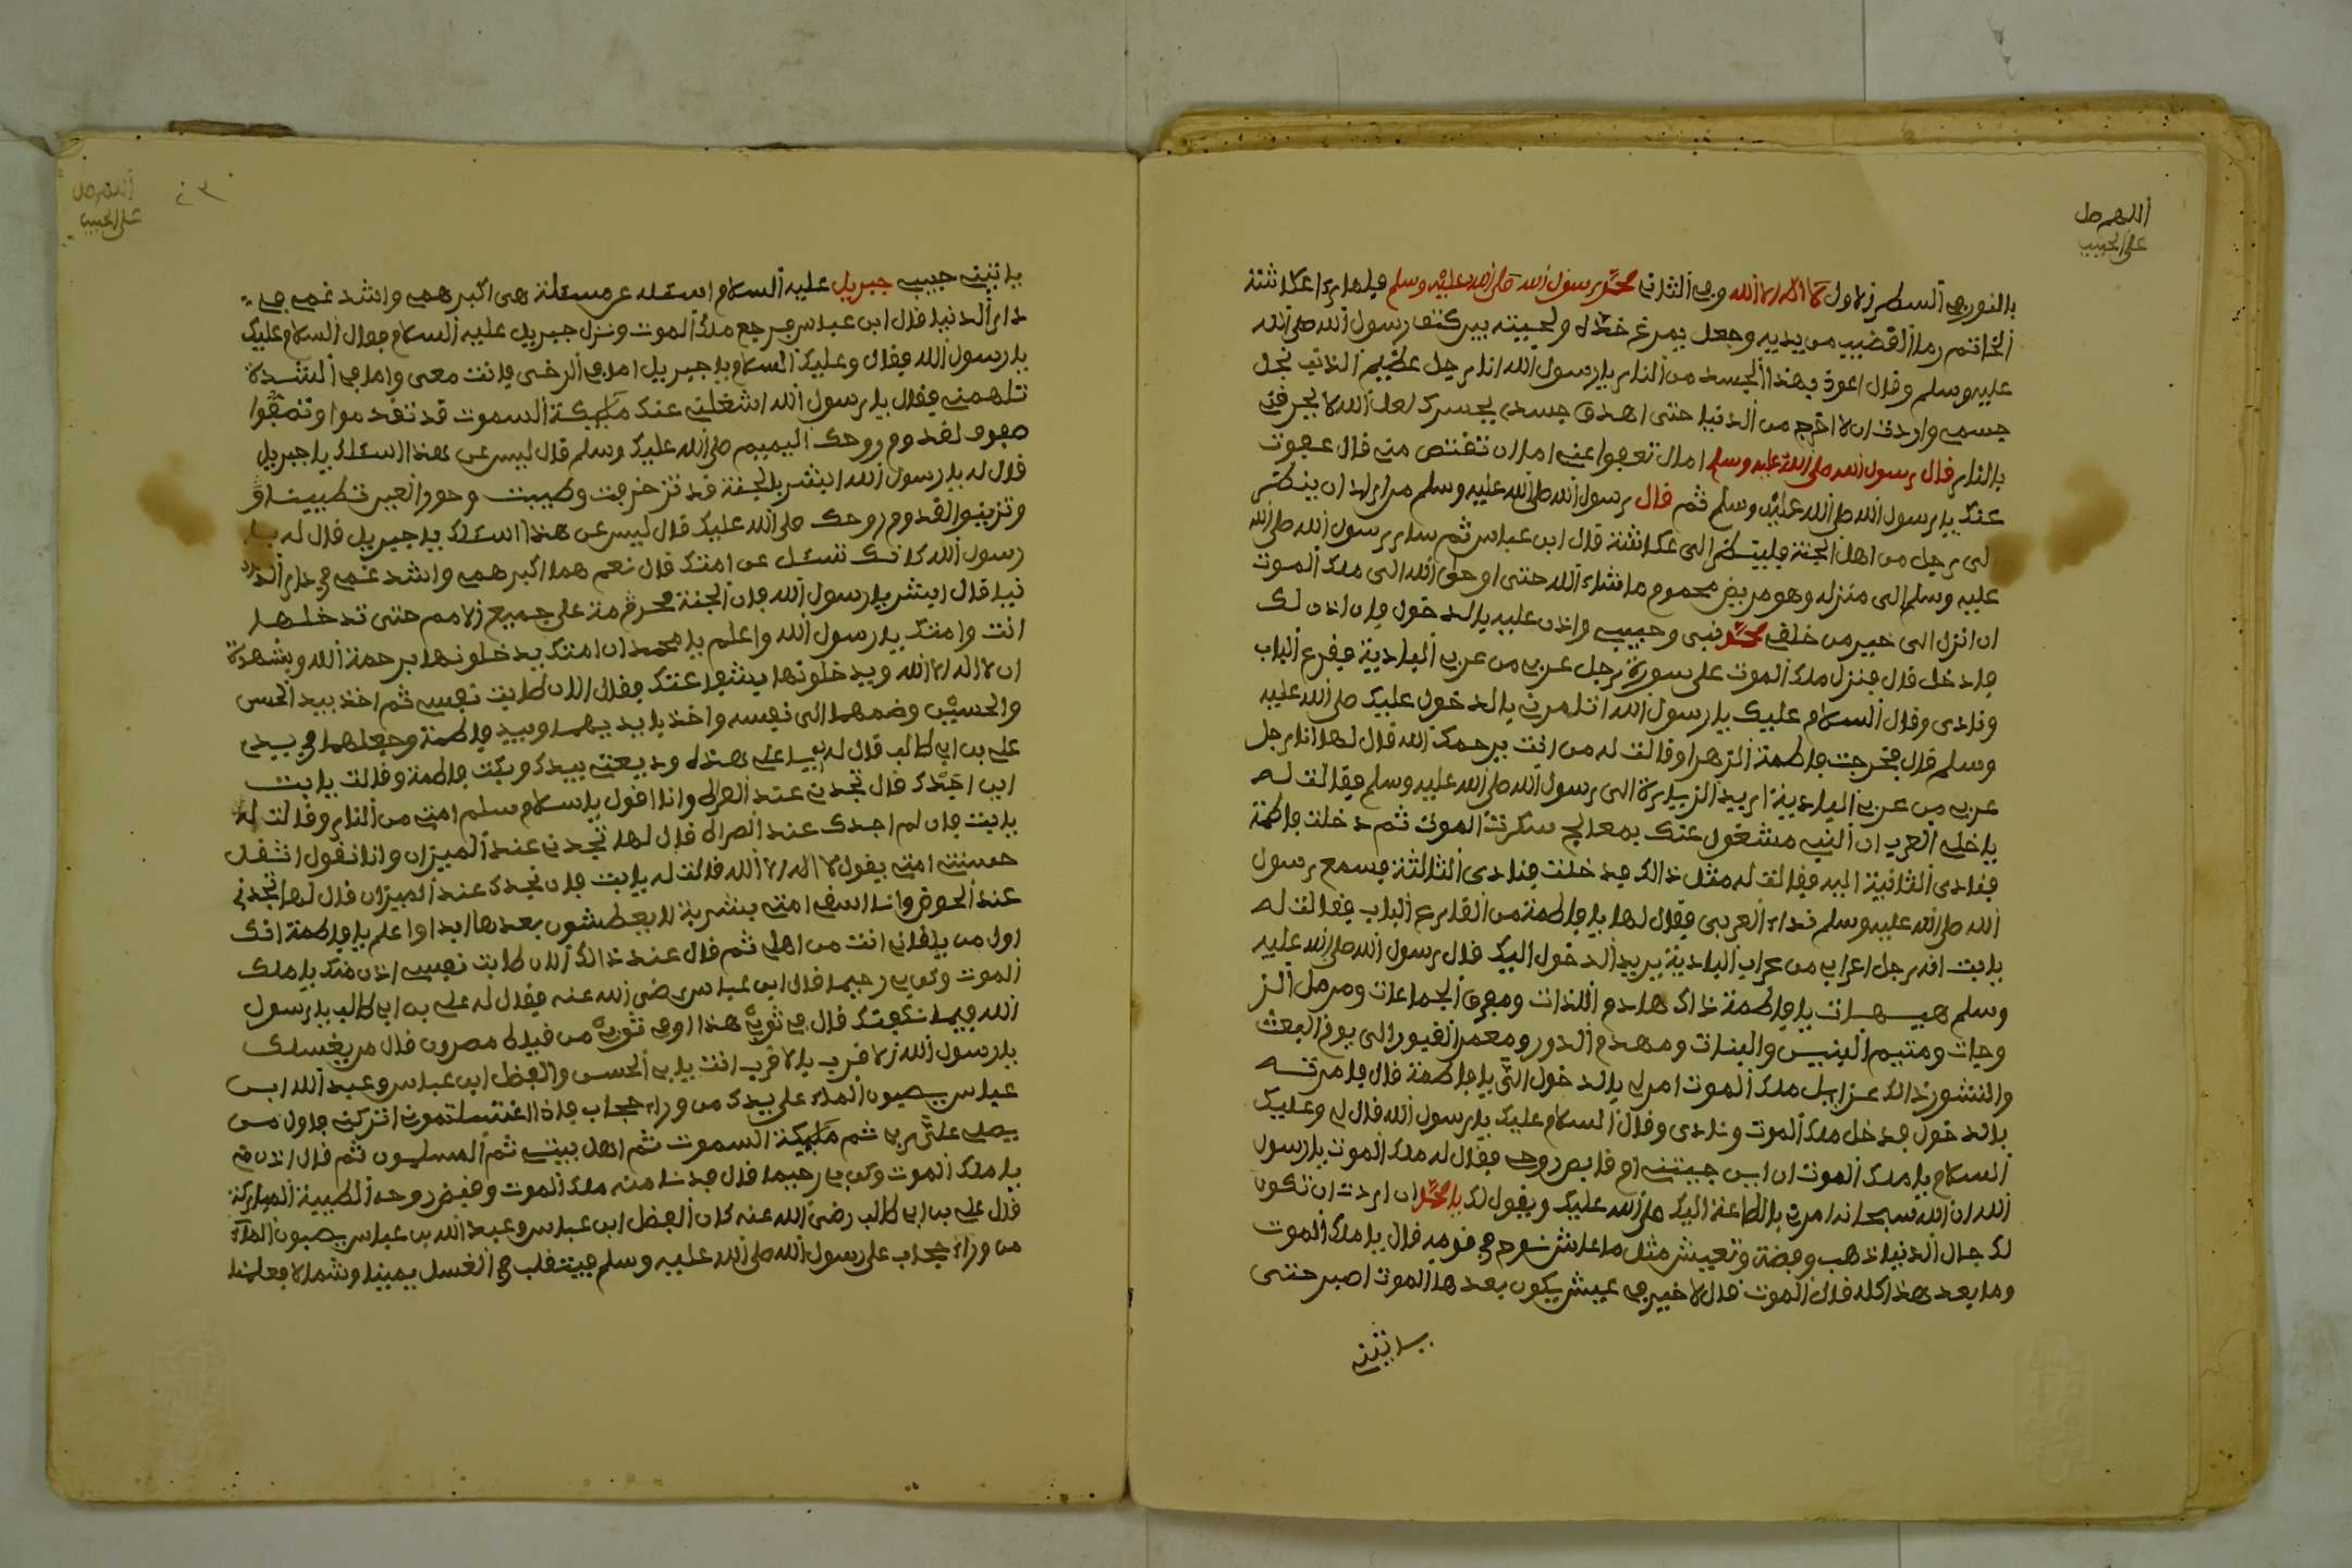 اللهم صل
على الحبيب
بالنور في السطر الاول لا اله الا الله وفي الثاني محمد رسول الله صلى الله عليه وسلم فلما راى عكاشة
الخاتم رما القضيب من يديه وجعل يمرغ خده ولحيته بين كتف رسول الله صلى الله
عليه وسلم وقال اعوذ بهذا الجسد من النار يا رسول الله انا رجل عظيم الذنب نحل
جسمي واردت ان لا اخرج من الدنيا حتى الصق جسدي بجسدك لعل الله لا يحرقني
بالنار قال رسول الله صلى الله عليه وسلم اما ان تعفوا عني اما ان تقتص مني قال عفوت
عنك يا رسول الله صلى الله عليه وسلم ثم قال رسول الله صلى الله عليه وسلم من اراد ان ينظر
الى رجل من اهل الجنة فلينظر الى عكاشة قال ابن عباس ثم سار رسول الله صلى الله
عليه وسلم الى منزله وهو مريض محموم ما شاء الله حتى اوحى الله الى ملك الموت
ان انزل الى خير من خلقي محمد نبي وحبيبي واذن عليه بالدخول فان اذن لك
فادخل قال فنزل ملك الموت على سورة رجل عربي من عرب البادية فقرع الباب
ونادى وقال السلام عليك يا رسول الله اتامرني بالدخول عليك صلى الله عليه
وسلم قال فخرجت فاطمة الزهرا وقالت له من انت يرحمك الله قال لها انا رجل
عربي من عرب البادية اريد الزيارة الى رسول الله صلى الله عليه وسلم فقالت له
يا خلي العرب ان النبي مشغول عنك بمعالج سكرت الموت ثم دخلت فاطمة
فنادى الثانية اليه فقالت له مثل ذالك فدخلت فنادى الثالثة فسمع رسول
الله صلى الله عليه وسلم نداء العربي فقال لها يا فاطمة من القارع الباب فقالت له
يا بت انه رجل اعرابي من عراب البادية يريد الدخول اليك قال رسول الله صلى الله عليه
وسلم هيهات يا فاطمة ذاك هادم اللذات ومفرق الجماعات ومرمل الز
وجات وميتم البنين والبنات ومهدم الدور ومعمر القبور الى يوم البعث
والنشور ذالك عزرايل ملك الموت امر لي بالدخول الي يا فاطمة قال فامرته
بالدخول فدخل ملك الموت ونادى وقال السلام عليك يا رسول الله قال لي وعليك
السلام يا ملك الموت ان اين جيتني ام قابض روحي فقال له ملك الموت يا رسول
الله ان الله سبحانه امرني بالطاعة اليك صلى الله عليك ويقول لك يا محمد ان اردت ان تكون
لك جبال الدنيا ذهب وفضة وتعيش مثل ما عاش نوح في قومه قال يا ملك الموت
وما بعد هذا كله قال الموت قال لا خير في عيش يكون بعدها الموت اصبر حتى
ياتيني
اللهم صل
على الحبيب
ياتيني حبيبي جبريل عليه السلام اسئله عن مسئلة هي اكبر همي واشد غمي في
دار الدنيا قال ابن عباس فرجع ملك الموت ونزل جبريل عليه السلام فقال السلام عليك
يا رسول الله فقال وعليك السلام يا جبريل اما في الرخى فانت معى واما في الشدة
تلهمني فقال يا رسول الله اشغلني عنك ملائكة السموت قد تقدموا وتصفوا
صفوف لقدوم روحك اليميم صلى الله عليك وسلم قال ليس عن هذا اسئلك يا جبريل
قال له يا رسول الله ابشر بالجنة قد تزخرفت وطيبت وحور العين تطيبت و
وتزينوا لقدوم روحك صلى الله عليك قال ليس عن هذا اسئلك يا جبريل قال له يا
رسول الله كانك تسئل عن امتك قال نعم هما اكبر همي واشد غمي في دار الد
نيا قال ابشر يا رسول الله فان الجنة محرمة على جميع الامم حتى تدخلها
انت وامتك يا رسول الله واعلم يا محمد ان امتك يدخلونها برحمة الله وبشهدة
ان لا اله الا الله ويدخلونها بشفاعتك فقال الان طابت نفسي ثم اخذ بيد الحسن
والحسين وضمهما الى نفسه واخذ بايديهما وبيد فاطمة وجعلهما في يدي
علي بن ابي طالب قال له يا علي هذه وديعتي بيدك وبكت فاطمة وقالت يا بت
اين اجدك قال تجدني عند الصراط وانا اقول يا سلام سلم امتي من النار وقالت له
يا بت فان لم اجدك عند الصراط قال لها تجدني عند الميزان وانا نقول اثقل
حسنت امتي بقول لا اله الا الله قالت له يا بت فان نجدك عند الميزان قال لها تجدني
عند الحوض وانا اسقي امتي بشربة لا يعطشون بعدها ابدا واعلم يا فاطمة انك
اول من يلقاني انت من اهلي ثم قال عند ذالك الان طابت نفسي اذن منك يا ملك
الموت وكن بي رحيما قال ابن عباس رضي الله عنه فقال له علي بن ابي طالب يا رسول
الله فيما نكفنك قال في ثوبي هذا او في ثوبي من قباط مصر وان قال من يغسلك
يا رسول الله الاقرب بالاقرب انت يا ابي الحسن والفضل ابن عباس وعبد الله ابن
عباس يصبون الماء على يدك من وراء حجاب فاذا اغتسلتمون اتركني فاول من
يصلي علي ربي ثم ملائكة السموت ثم اهل بيتي ثم المسلمون ثم قال اذن مني
يا ملك الموت وكن بي رحيما قال فدنا منه ملك الموت وقبض روحه الطيبة المباركة
قال علي بن ابي طالب رضي الله عنه كان الفضل ابن عباس وعبد الله بن عباس يصبون الماء
من وراء حجاب على رسول الله صلى الله عليه وسلم فيتقلب في الغسل يمينا وشمالا فعلمنا